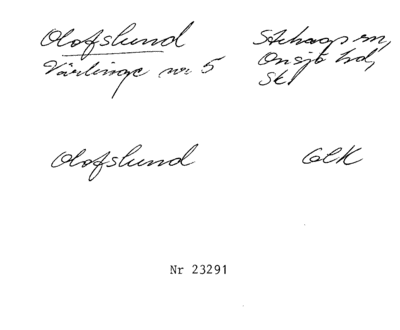 Olofslund
Värlinge nr 5
Stehags sn,
Onsjö hd,
Sk
Olofslund
GEK
Nr 23291